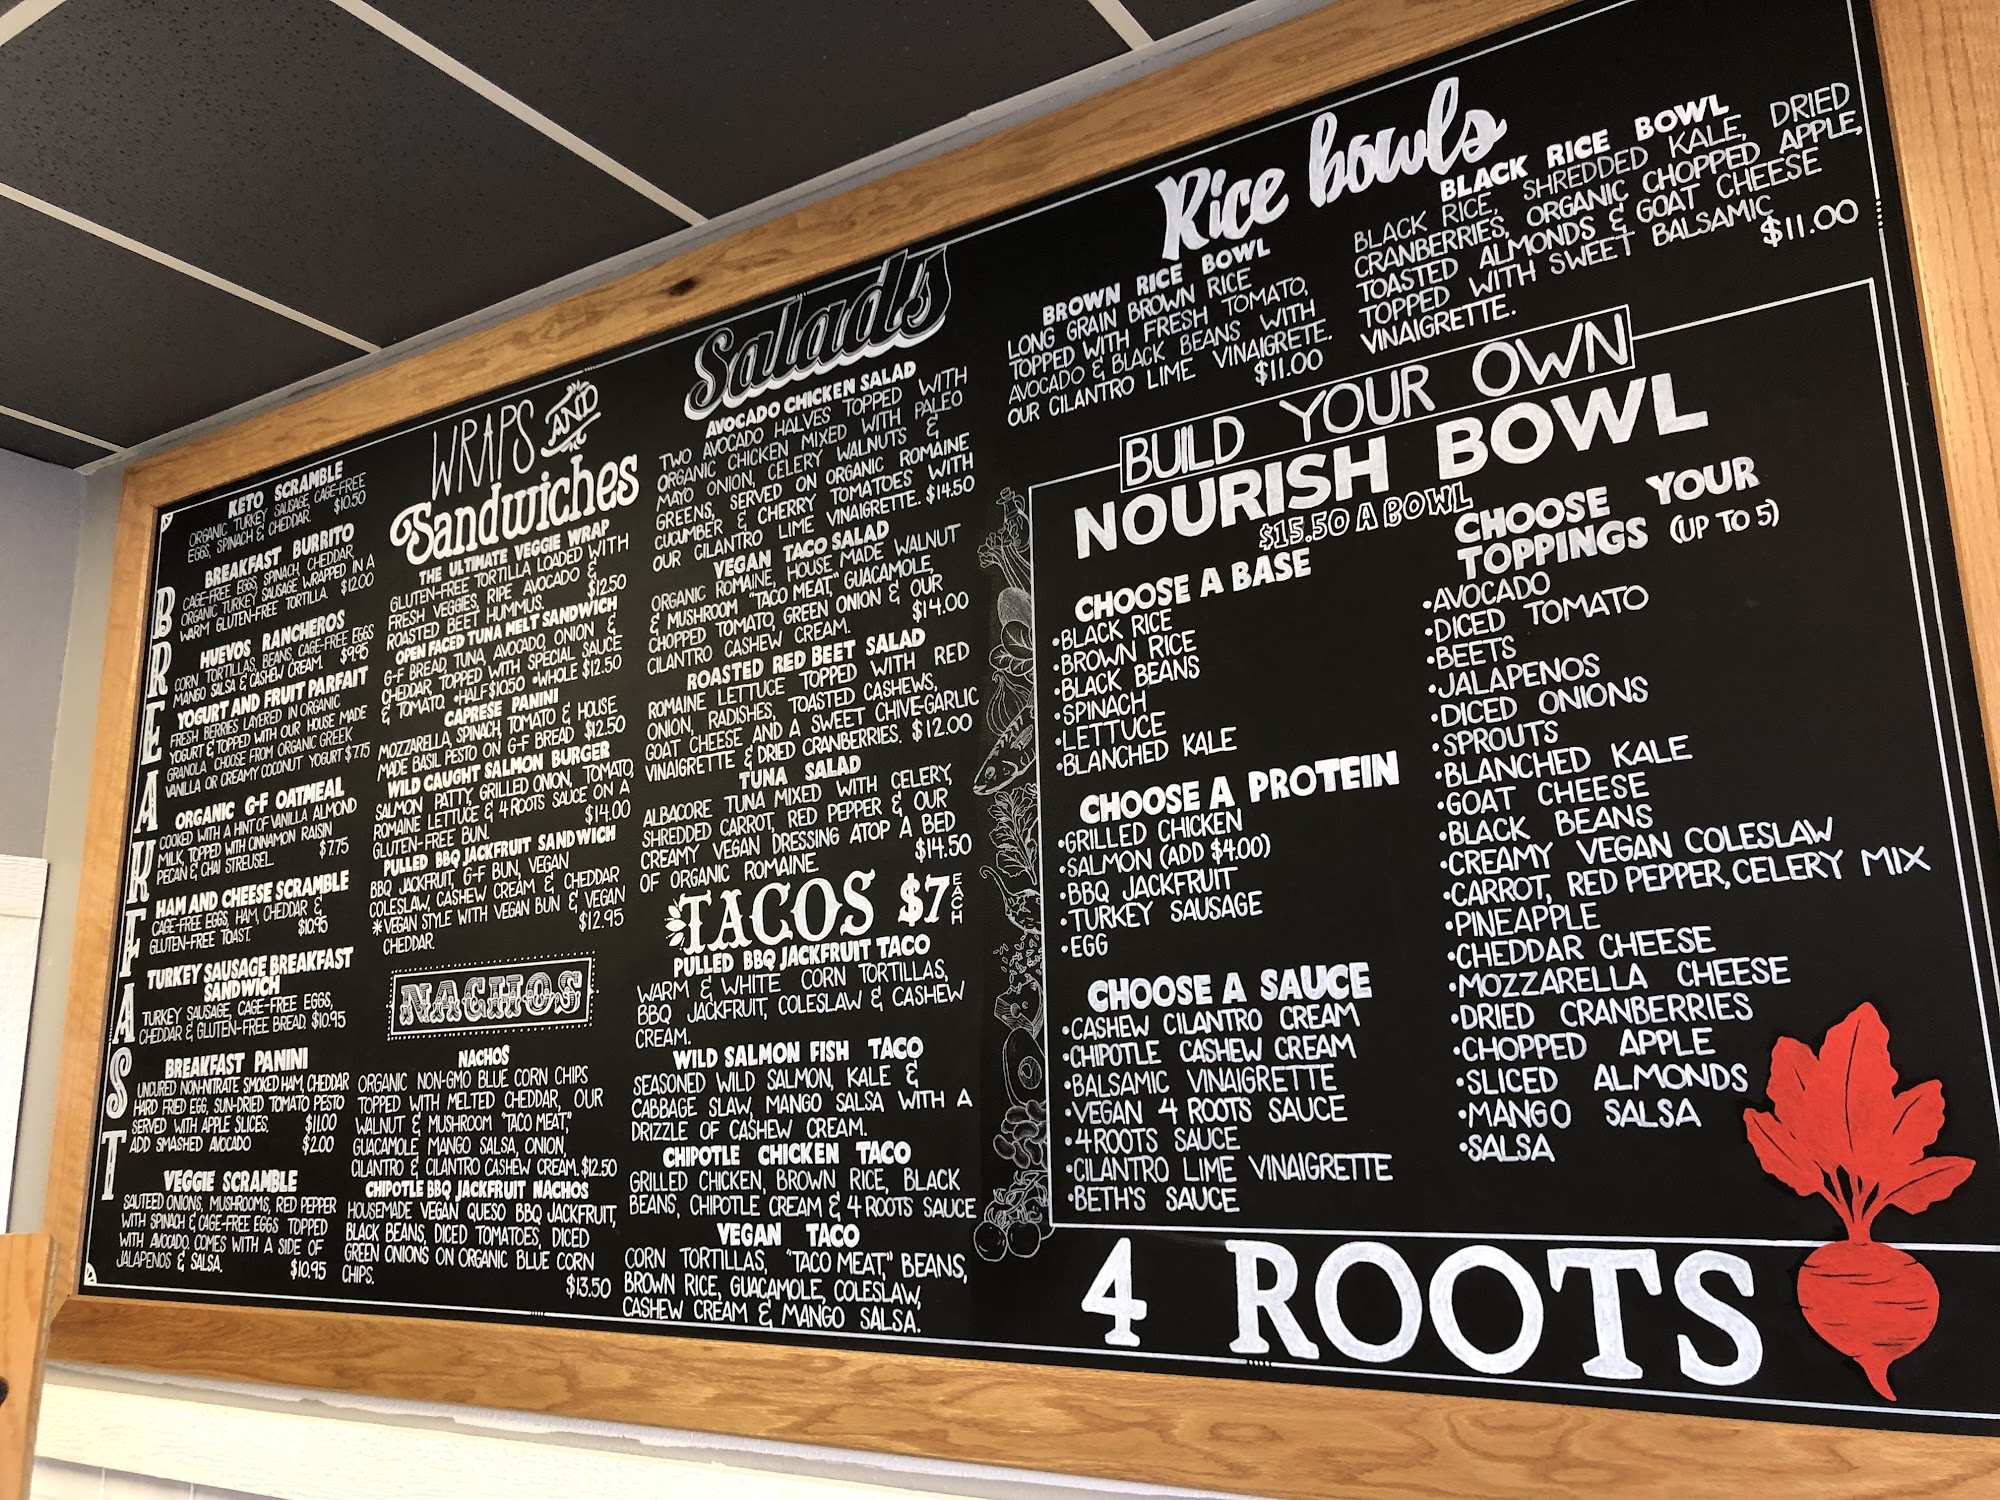 BREAKFAST
KETO SCRAMBLE
ORGANIC TURKEY SAUSAGE, CAGE-FREE
EGGS, SPINACH & CHEDDAR. $10.50
BREAKFAST BURRITO
CAGE-FREE EGGS, SPINACH, CHEDDAR,
ORGANIC TURKEY SAUSAGE WRAPPED IN A
WARM GLUTEN-FREE TORTILLA. $12.00
HUEVOS RANCHEROS
CORN TORTILLAS, BEANS, CAGE-FREE EGGS
MANGO SALSA & CASHEW CREAM. $9.95
YOGURT AND FRUIT PARFAIT
FRESH BERRIES LAYERED IN ORGANIC
YOGURT & TOPPED WITH OUR HOUSE MADE
GRANOLA. CHOOSE FROM ORGANIC GREEK
VANILLA OR CREAMY COCONUT YOGURT $7.75
ORGANIC G-F OATMEAL
COOKED WITH A HINT OF VANILLA ALMOND
MILK, TOPPED WITH CINNAMON RAISIN
PECAN & CHAI STREUSEL. $7.75
HAM AND CHEESE SCRAMBLE
CAGE-FREE EGGS, HAM, CHEDDAR &
GLUTEN-FREE TOAST. $10.95
TURKEY SAUSAGE BREAKFAST
SANDWICH
TURKEY SAUSAGE, CAGE-FREE EGGS,
CHEDDAR & GLUTEN-FREE BREAD. $10.95
BREAKFAST PANINI
UNCURED NON-NITRATE SMOKED HAM, CHEDDAR
HARD FRIED EGG, SUN-DRIED TOMATO PESTO
SERVED WITH APPLE SLICES. $11.00
ADD SMASHED AVOCADO $2.00
VEGGIE SCRAMBLE
SAUTEED ONIONS, MUSHROOMS, RED PEPPER
WITH SPINACH & CAGE-FREE EGGS TOPPED
WITH AVOCADO. COMES WITH A SIDE OF
JALAPENOS & SALSA. $10.95
WRAPS AND
Sandwiches
THE ULTIMATE VEGGIE WRAP
GLUTEN-FREE TORTILLA LOADED WITH
FRESH VEGGIES, RIPE AVOCADO &
ROASTED BEET HUMMUS. $12.50
OPEN FACED TUNA MELT SANDWICH
G-F BREAD, TUNA, AVOCADO, ONION &
CHEDDAR, TOPPED WITH SPECIAL SAUCE
& TOMATO. •HALF $10.50 •WHOLE $12.50
CAPRESE PANINI
MOZZARELLA, SPINACH, TOMATO & HOUSE
MADE BASIL PESTO ON G-F BREAD $12.50
WILD CAUGHT SALMON BURGER
SALMON PATTY, GRILLED ONION, TOMATO,
ROMAINE LETTUCE & 4 ROOTS SAUCE ON A
GLUTEN-FREE BUN. $14.00
PULLED BBQ JACKFRUIT SANDWICH
BBQ JACKFRUIT, G-F BUN, VEGAN
COLESLAW, CASHEW CREAM & CHEDDAR
*VEGAN STYLE WITH VEGAN BUN & VEGAN
CHEDDAR. $12.95
NACHOS
NACHOS
ORGANIC NON-GMO BLUE CORN CHIPS
TOPPED WITH MELTED CHEDDAR, OUR
WALNUT & MUSHROOM "TACO MEAT,"
GUACAMOLE, MANGO SALSA, ONION,
CILANTRO & CILANTRO CASHEW CREAM. $12.50
CHIPOTLE BBQ JACKFRUIT NACHOS
HOUSEMADE VEGAN QUESO BBQ JACKFRUIT,
BLACK BEANS, DICED TOMATOES, DICED
GREEN ONIONS ON ORGANIC BLUE CORN
CHIPS. $13.50
Salads
AVOCADO CHICKEN SALAD
TWO AVOCADO HALVES TOPPED WITH
ORGANIC CHICKEN MIXED WITH PALEO
MAYO ONION, CELERY WALNUTS &
GREENS, SERVED ON ORGANIC ROMAINE
CUCUMBER & CHERRY TOMATOES WITH
OUR CILANTRO LIME VINAIGRETTE. $14.50
VEGAN TACO SALAD
ORGANIC ROMAINE, HOUSE MADE WALNUT
& MUSHROOM "TACO MEAT," GUACAMOLE,
CHOPPED TOMATO, GREEN ONION & OUR
CILANTRO CASHEW CREAM. $14.00
ROASTED RED BEET SALAD
ROMAINE LETTUCE TOPPED WITH RED
ONION, RADISHES, TOASTED CASHEWS,
GOAT CHEESE AND A SWEET CHIVE-GARLIC
VINAIGRETTE & DRIED CRANBERRIES. $12.00
TUNA SALAD
ALBACORE TUNA MIXED WITH CELERY,
SHREDDED CARROT, RED PEPPER & OUR
CREAMY VEGAN DRESSING ATOP A BED
OF ORGANIC ROMAINE. $14.50
TACOS $7 EACH
PULLED BBQ JACKFRUIT TACO
WARM & WHITE CORN TORTILLAS,
BBQ JACKFRUIT, COLESLAW & CASHEW
CREAM.
WILD SALMON FISH TACO
SEASONED WILD SALMON, KALE &
CABBAGE SLAW, MANGO SALSA WITH A
DRIZZLE OF CASHEW CREAM.
CHIPOTLE CHICKEN TACO
GRILLED CHICKEN, BROWN RICE, BLACK
BEANS, CHIPOTLE CREAM & 4 ROOTS SAUCE
VEGAN TACO
CORN TORTILLAS, "TACO MEAT," BEANS,
BROWN RICE, GUACAMOLE, COLESLAW,
CASHEW CREAM & MANGO SALSA.
Rice bowls
BROWN RICE BOWL
LONG GRAIN BROWN RICE
TOPPED WITH FRESH TOMATO,
AVOCADO & BLACK BEANS WITH
OUR CILANTRO LIME VINAIGRETE.
$11.00
BLACK RICE BOWL
BLACK RICE, SHREDDED KALE, DRIED
CRANBERRIES, ORGANIC CHOPPED APPLE,
TOASTED ALMONDS & GOAT CHEESE
TOPPED WITH SWEET BALSAMIC
VINAIGRETTE. $11.00
BUILD YOUR OWN
NOURISH BOWL
$15.50 A BOWL
CHOOSE A BASE
•BLACK RICE
•BROWN RICE
•BLACK BEANS
•SPINACH
•LETTUCE
•BLANCHED KALE
CHOOSE A PROTEIN
•GRILLED CHICKEN
•SALMON (ADD $4.00)
•BBQ JACKFRUIT
•TURKEY SAUSAGE
•EGG
CHOOSE A SAUCE
•CASHEW CILANTRO CREAM
•CHIPOTLE CASHEW CREAM
•BALSAMIC VINAIGRETTE
•VEGAN 4 ROOTS SAUCE
•4 ROOTS SAUCE
•CILANTRO LIME VINAIGRETTE
•BETH'S SAUCE
CHOOSE YOUR
TOPPINGS (UP TO 5)
•AVOCADO
•DICED TOMATO
•BEETS
•JALAPENOS
•DICED ONIONS
•SPROUTS
•BLANCHED KALE
•GOAT CHEESE
•BLACK BEANS
•CREAMY VEGAN COLESLAW
•CARROT, RED PEPPER, CELERY MIX
•PINEAPPLE
•CHEDDAR CHEESE
•MOZZARELLA CHEESE
•DRIED CRANBERRIES
•CHOPPED APPLE
•SLICED ALMONDS
•MANGO SALSA
•SALSA
4 ROOTS